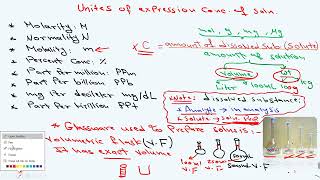 Unites of expression Conc. of soln.
* Molarity: M
* Normality N
* Molality: m
* Percent Conc. %
* Part Per million: PPm
* Part Per billion: PPb
* mg Per deciliter mg/dL
* Part Per trillion PPt
mol, g, mg, Mg
* C = amount of dissolved sub (Solute)
amount of solution
Volume
wt
Liter 100mL
kg
* Note: dissolved substance:
* Analyte → in analysis
* Solute → soln. Prep
* Glassware used to Prepare soln is:
volumetric flask (V.F)
It has exact volume
100mL
V.F
250mL
V.F
500mL
V.F